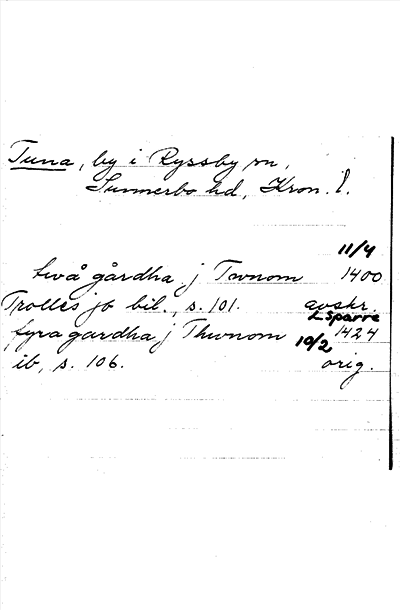 Tuna, by i Ryssby sn,
Sunnerbo hd, Kron. l.
11/4
två gårdha j Twnom 1400
Trolles jb bil., s. 101. avskr.
L Sparre
fyra gardha j Thwnom 10/2 1424
ib, s. 106. orig.